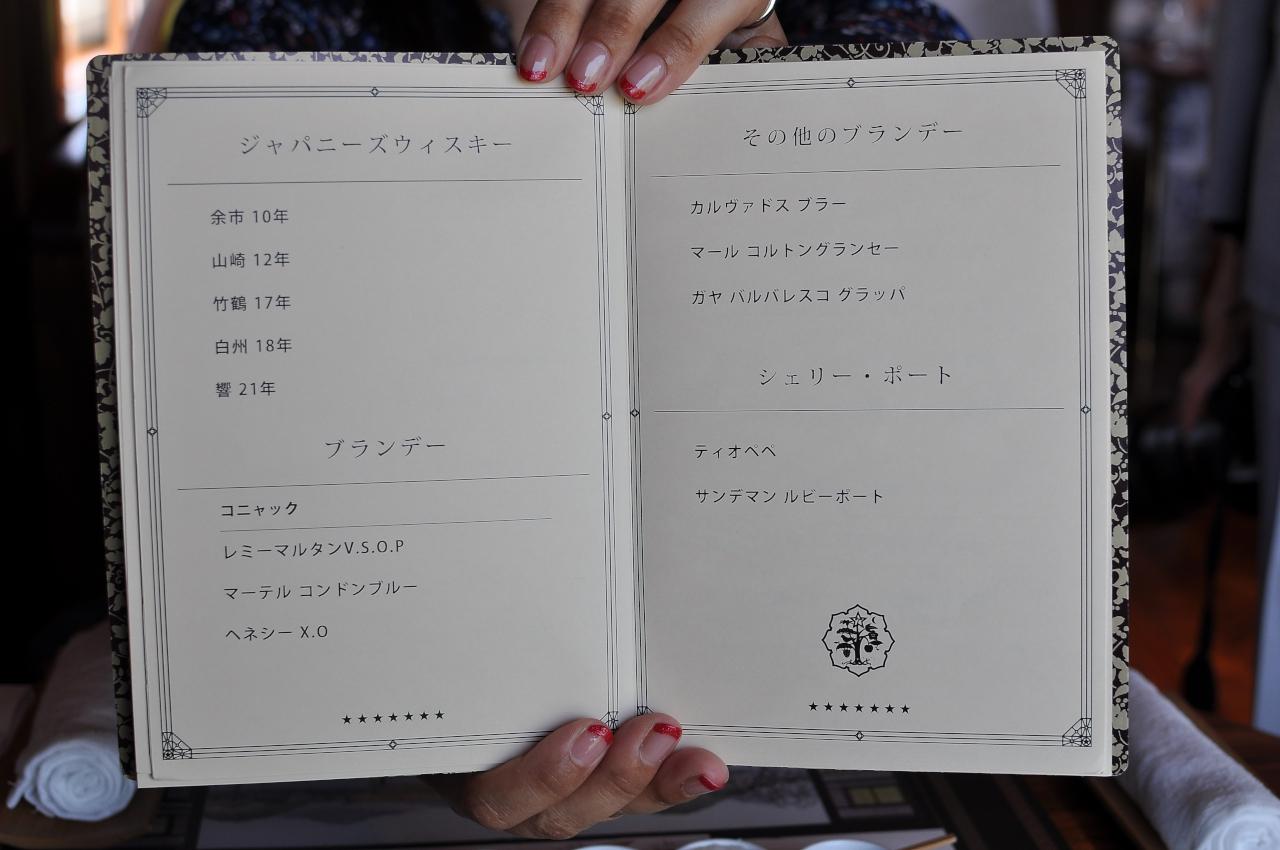 ジャパニーズウィスキー
余市 10年
山崎 12年
竹鶴 17年
白州 18年
響 21年
ブランデー
コニャック
レミーマルタンV.S.O.P
マーテル コンドンブルー
ヘネシー X.O
★★★★★★★
その他のブランデー
カルヴァドス ブラー
マール コルトングランセー
ガヤ バルバレスコ グラッパ
シェリー・ポート
ティオペペ
サンデマン ルビーポート
★★★★★★★